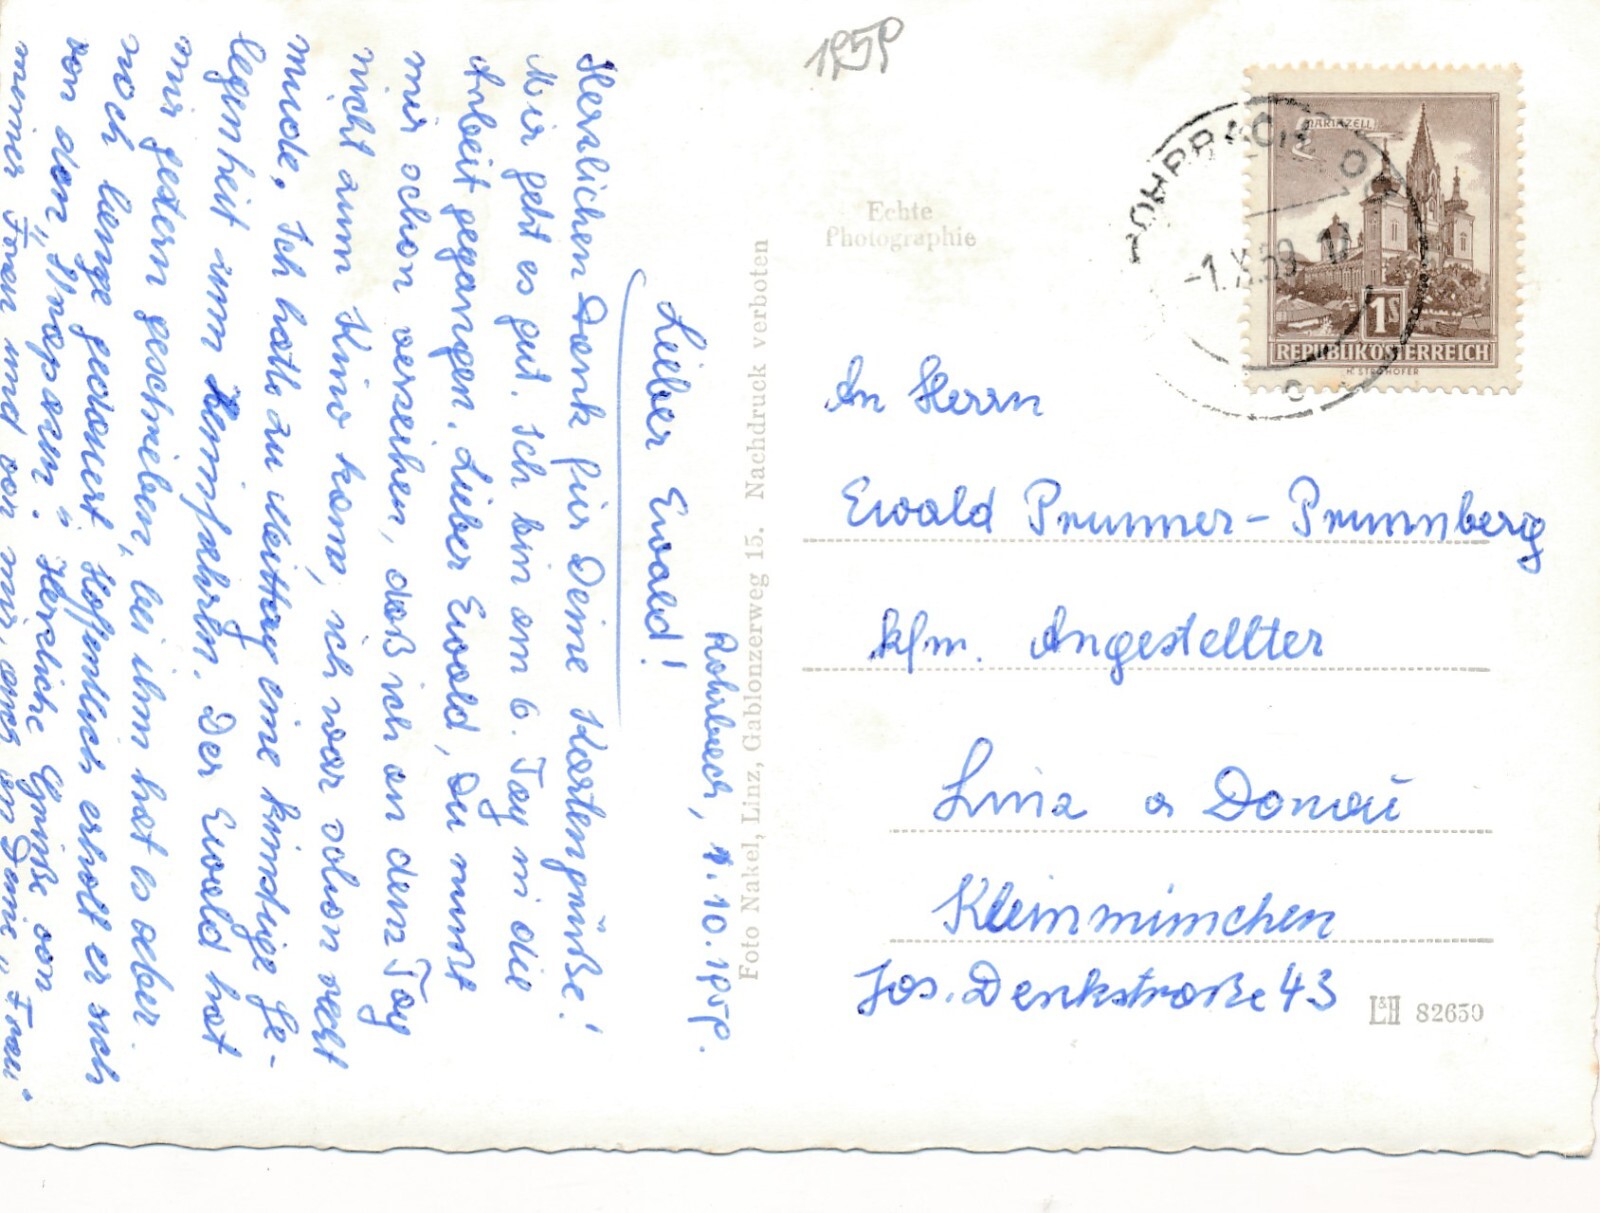 Rohrbach, 1.10.1959.
Lieber Ewald!
Herzlichen Dank für Deine Kartengrüße!
Mir geht es gut. Ich bin am 6. Tag in die
Arbeit gegangen. Lieber Ewald, Du mußt
mir schon verzeihen, daß ich an dem Tag
nicht zum Kino kam, ich war schon recht
müde. Ich hatte zu Mittag eine günstige Ge-
legenheit zum Heimfahren. Der Ewald hat
mir gestern geschrieben, bei ihm hat es aber
noch lange gedauert. Hoffentlich erholt er sich
von den „Strapazen". Herzliche Grüße von
meiner Frau und von mir, auch an Deine „Frau".
1959
Echte
Photographie
Foto Nakel, Linz, Gablonzerweg 15. Nachdruck verboten
MARIAZELL
1S
REPUBLIK ÖSTERREICH
H. STROHOFER
ROHRBACH, OÖ
-1.X.59 12
c
An Herrn
Ewald Prunner-Prunnberg
kfm. Angestellter
Linz a Donau
Kleinmünchen
Jos. Denkstraße 43
L&H 82659